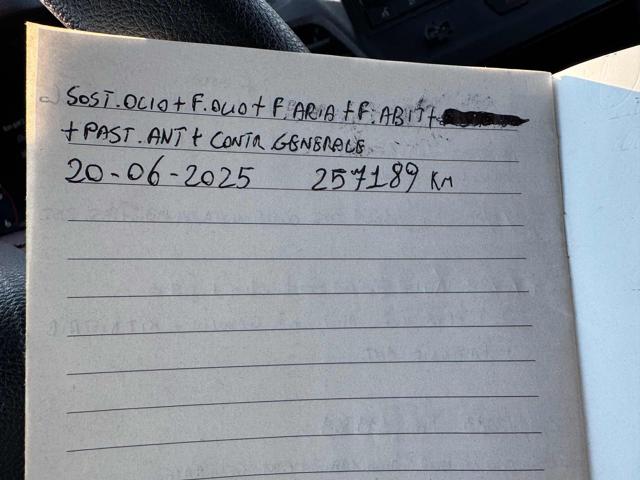 SOST.OLIO + F.OLIO + F.ARIA + F.ABIT +
+ PAST.ANT + CONTR GENERALE
20-06-2025 257189 KM